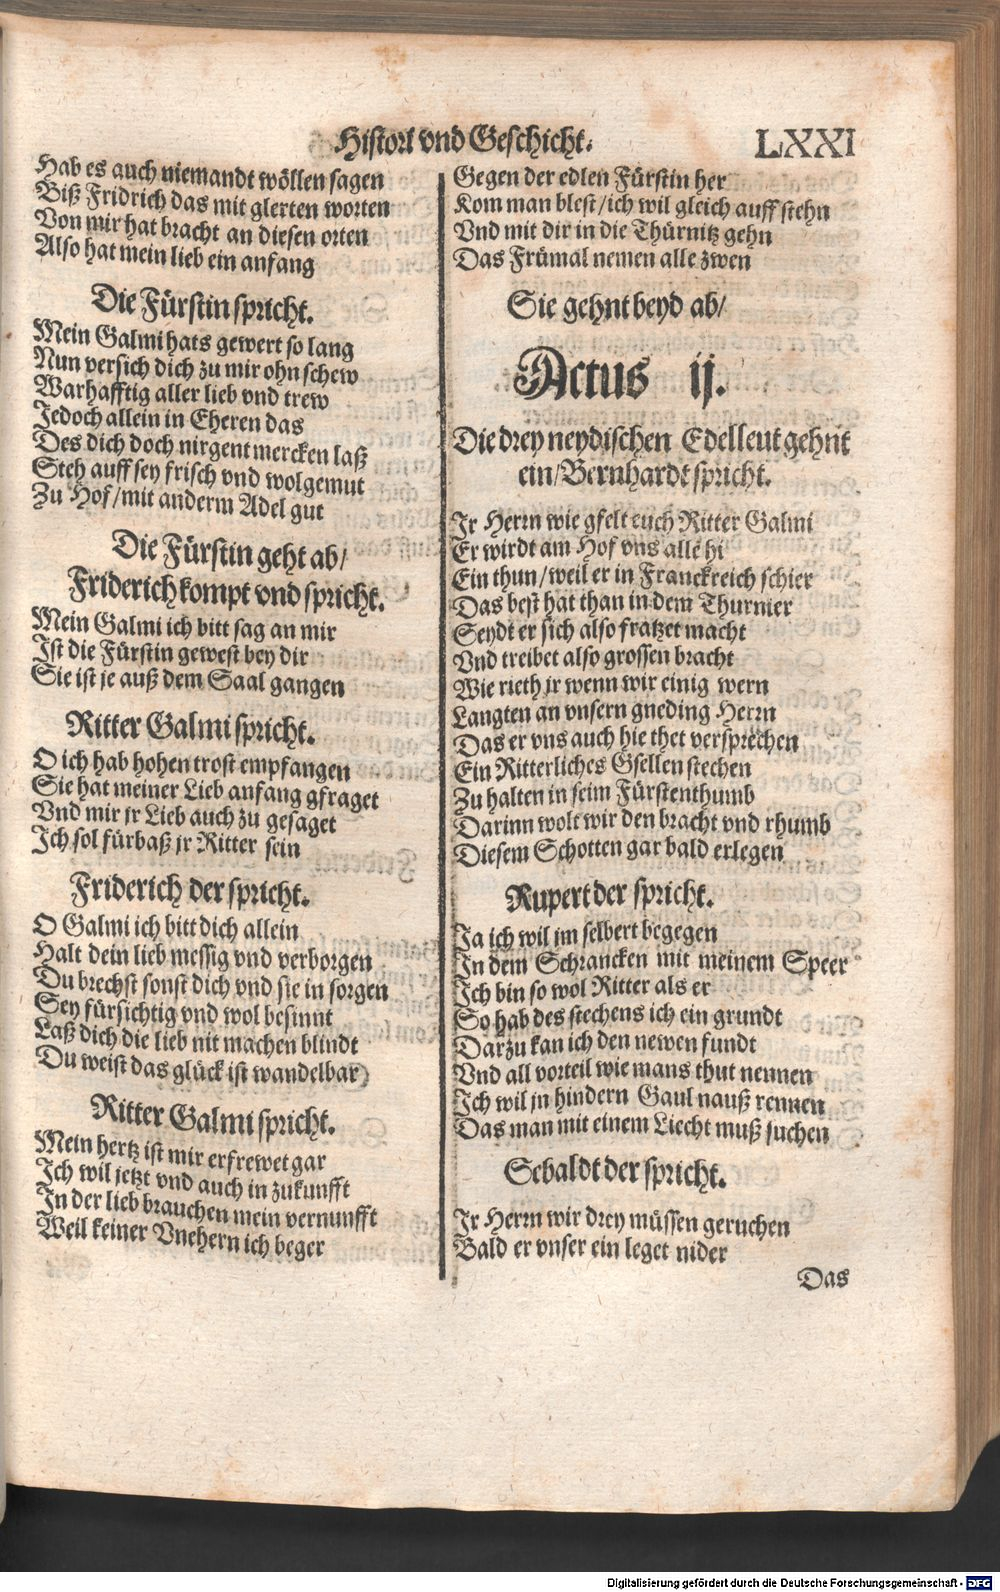 Histori vnd Geschicht.
LXXI
Hab es auch niemandt wöllen sagen
Biß Fridrich das mit glerten worten
Von mir hat bracht an diesen orten
Also hat mein lieb ein anfang
Die Fürstin spricht.
Mein Galmi hats gewert so lang
Nun versich dich zu mir ohn schew
Warhafftig aller lieb vnd trew
Jedoch allein in Eheren das
Des dich doch nirgent mercken laß
Steh auff sey frisch vnd wolgemut
Zu Hof/mit anderm Adel gut
Die Fürstin geht ab/
Friderich kompt vnd spricht.
Mein Galmi ich bitt sag an mir
Ist die Fürstin gewest bey dir
Sie ist je auß dem Saal gangen
Ritter Galmi spricht.
O ich hab hohen trost empfangen
Sie hat meiner Lieb anfang gfraget
Vnd mir jr Lieb auch zu gesaget
Ich sol fürbaß jr Ritter sein
Friderich der spricht.
O Galmi ich bitt dich allein
Halt dein lieb messig vnd verborgen
Du brechst sonst dich vnd sie in sorgen
Sey fürsichtig vnd wol besinnt
Laß dich die lieb nit machen blindt
Du weist das glück ist wandelbar
Ritter Galmi spricht.
Mein hertz ist mir erfrewet gar
Ich wil jetzt vnd auch in zukunfft
In der lieb brauchen mein vernunfft
Weil keiner Vnehern ich beger
Gegen der edlen Fürstin her
Kom man blest/ich wil gleich auff stehn
Vnd mit dir in die Thürnitz gehn
Das Frümal nemen alle zwen
Sie gehnt beyd ab/
Actus ij.
Die drey neydischen Edelleut gehnt
ein/Bernhardt spricht.
Jr Herrn wie gfelt euch Ritter Galmi
Er wirdt am Hof vns alle hi
Ein thun/weil er in Franckreich schier
Das best hat than in dem Thurnier
Seydt er sich also fratzet macht
Vnd treibet also grossen bracht
Wie rieth jr wenn wir einig wern
Langten an vnsern gneding Herrn
Das er vns auch hie thet versprechen
Ein Ritterliches Gsellen stechen
Zu halten in seim Fürstenthumb
Darinn wolt wir den bracht vnd rhumb
Diesem Schotten gar bald erlegen
Rupert der spricht.
Ja ich wil jm selbert begegen
In dem Schrancken mit meinem Speer
Ich bin so wol Ritter als er
So hab des stechens ich ein grundt
Darzu kan ich den newen fundt
Vnd all vorteil wie mans thut nennen
Ich wil jn hindern Gaul nauß rennen
Das man mit einem Liecht muß suchen
Sebaldt der spricht.
Jr Herrn wir drey müssen geruchen
Bald er vnser ein leget nider
Das
Digitalisierung gefördert durch die Deutsche Forschungsgemeinschaft - DFG